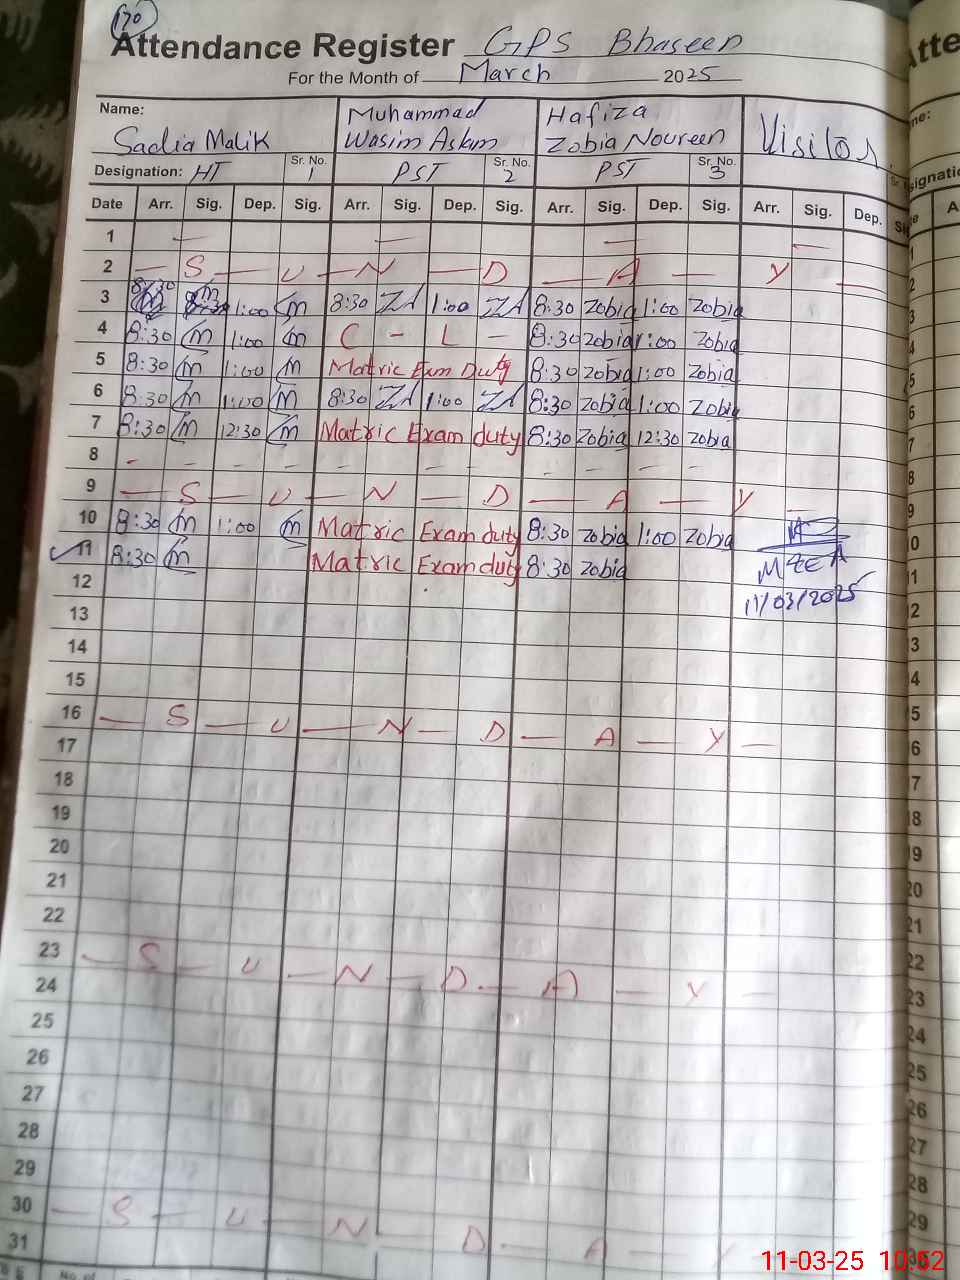 170
Attendance Register GPS Bhaseen
For the Month of March 2025
Name: Sadia Malik Muhammad Wasim Aslam Hafiza Zobia Noureen Visitor
Designation: HT Sr. No. 1 PST Sr. No. 2 PST Sr. No. 3
Date Arr. Sig. Dep. Sig. Arr. Sig. Dep. Sig. Arr. Sig. Dep. Sig. Arr. Sig. Dep.
1 — — — —
2 — S — U — N — D — A — Y —
3 8:30 1:00 8:30 1:00 8:30 Zobia 1:00 Zobia
4 8:30 1:00 C - L - 8:30 Zobia 1:00 Zobia
5 8:30 1:00 Matric Exm Duty 8:30 Zobia 1:00 Zobia
6 8:30 1:00 8:30 1:00 8:30 Zobia 1:00 Zobia
7 8:30 12:30 Matric Exam duty 8:30 Zobia 12:30 Zobia
8 - - - - - - - - - - - -
9 — S — U — N — D — A — Y —
10 8:30 1:00 Matric Exam duty 8:30 Zobia 1:00 Zobia
11 8:30 Matric Exam duty 8:30 Zobia MEEA
12 11/03/2025
13
14
15
16 — S — U — N — D — A — Y —
17
18
19
20
21
22
23 — S — U — N — D — A — Y —
24
25
26
27
28
29
30 — S — U — N — D — A — Y
31
11-03-25 10:52